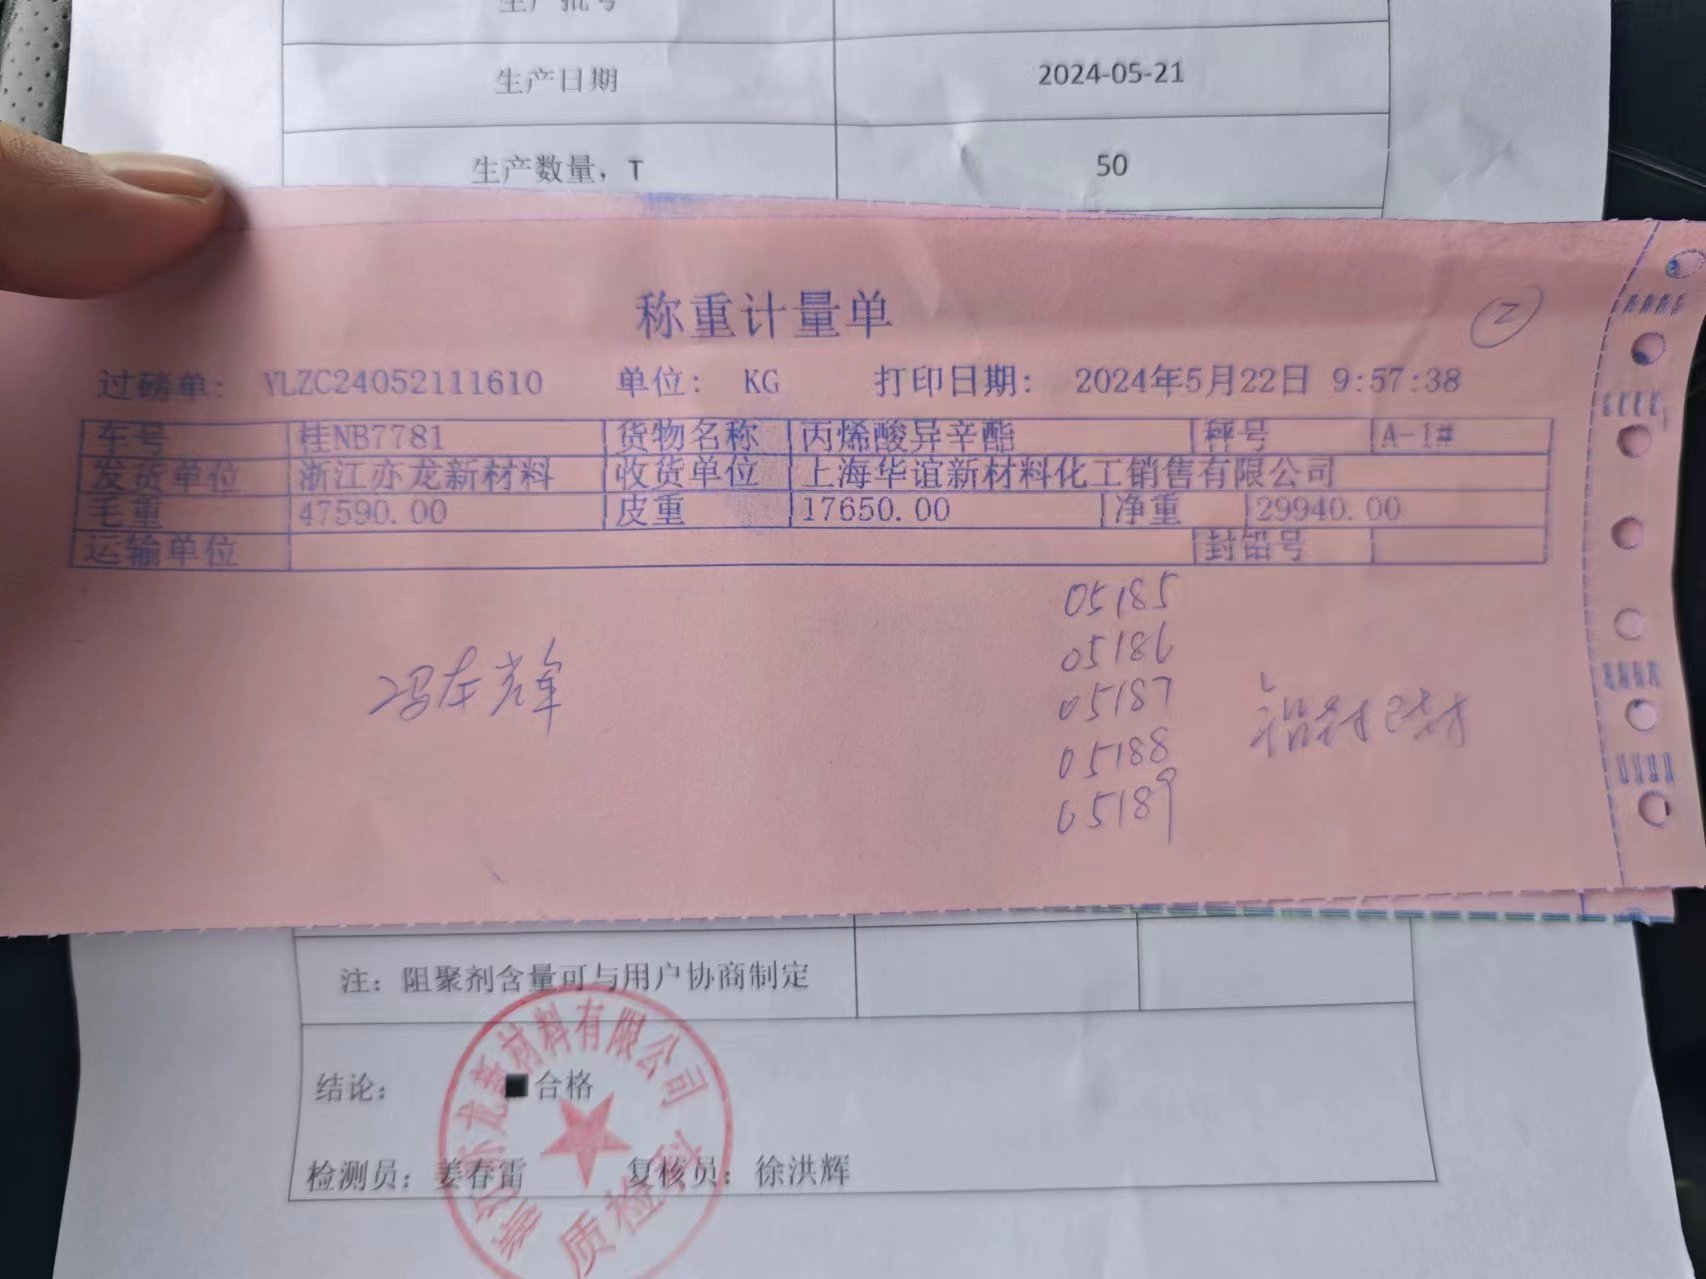 生产批号
生产日期 2024-05-21
生产数量，T 50
称重计量单
2
过磅单： YLZC24052111610 单位： KG 打印日期： 2024年5月22日 9:57:38
车号 桂NB7781 货物名称 丙烯酸异辛酯 秤号 A-1#
发货单位 浙江亦龙新材料 收货单位 上海华谊新材料化工销售有限公司
毛重 47590.00 皮重 17650.00 净重 29940.00
运输单位 封铅号
05185
05186
05187
05188
05189
铅封已封
注：阻聚剂含量可与用户协商制定
结论： ■合格
检测员：姜春雷 复核员：徐洪辉
浙江亦龙新材料有限公司
质检科